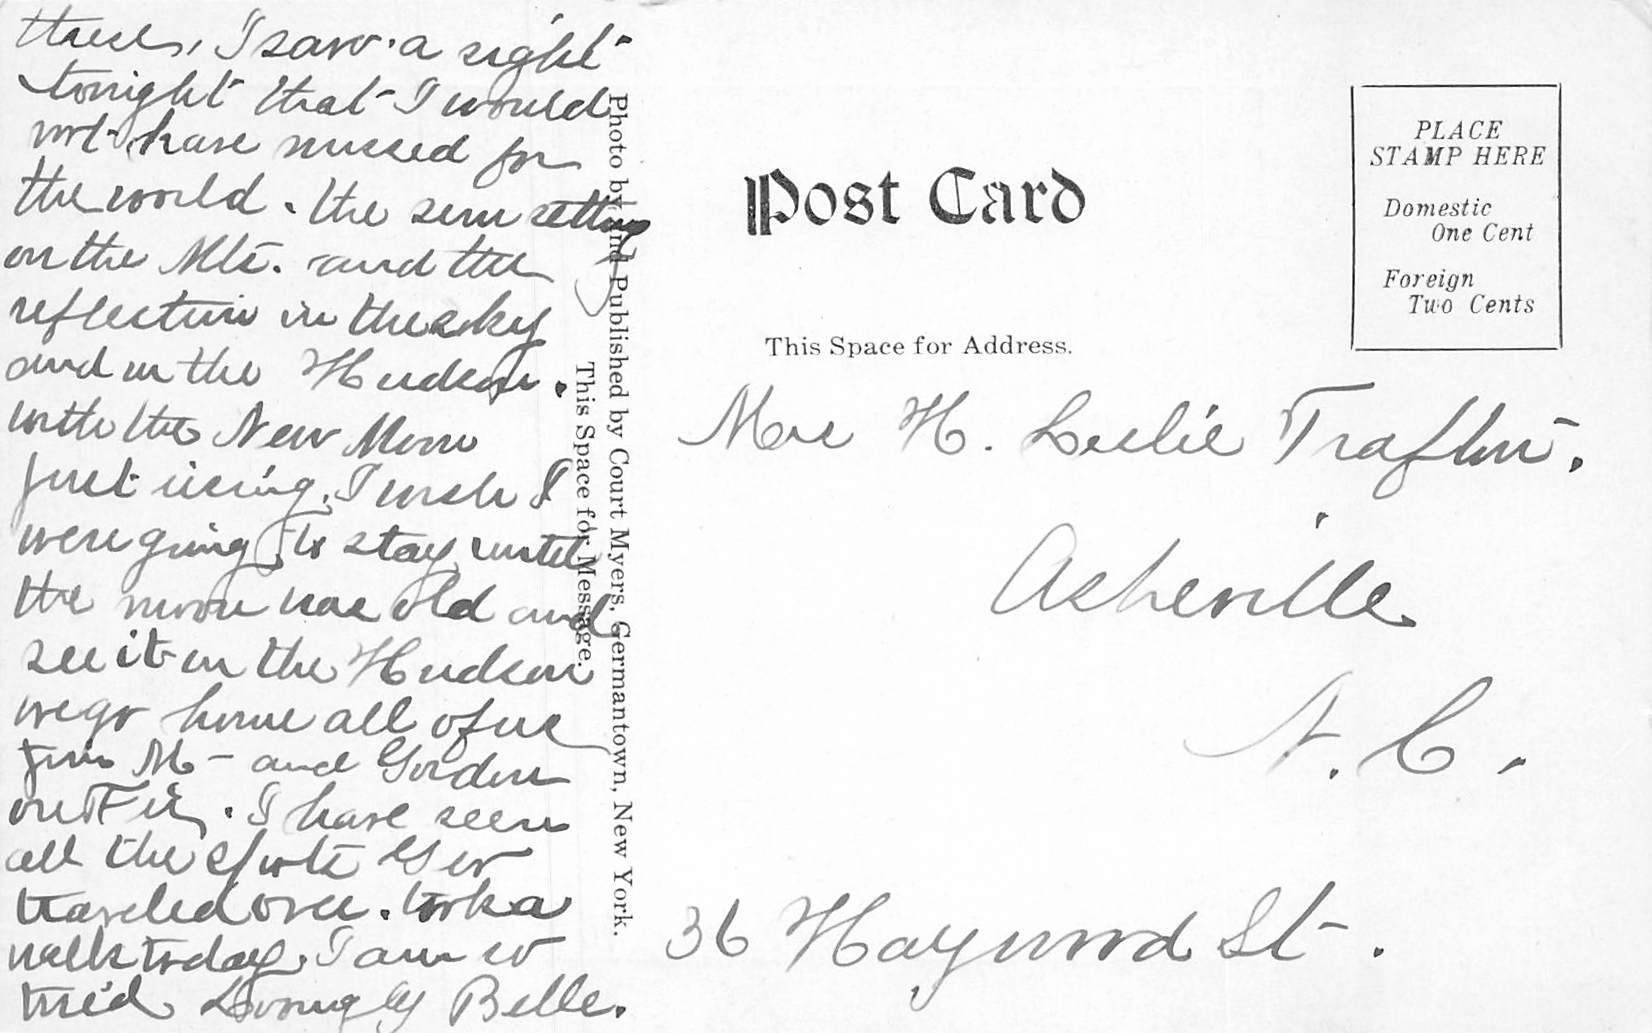 there, I saw a sight
tonight that I would
not have missed for
the world. the sun setting
on the Mts. and the
reflection in the sky
and in the Hudson.
with the New Moon
just rising. I wish I
were going to stay until
the moon was old and
see it in the Hudson
we go home all of us
M - and Gordon
on Fri. I have seen
all the spots Geo
traveled over. took a
walk today. I am so
tired Lovingly Belle.
This Space for Message.
Photo by and Published by Court Myers, Germantown, New York.
Post Card
This Space for Address.
PLACE
STAMP HERE
Domestic
One Cent
Foreign
Two Cents
Mrs H. Leslie Trafton.
Asheville
N. C.
36 Haywood St.